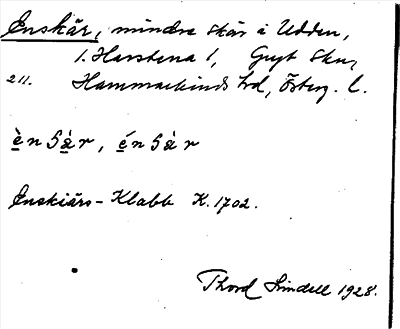 Enskär, mindre skär å Udden,
1. Harstena 1, Gryt Skn,
211. Hammarkinds hd, Österg. l.
ènsàr, énsàr
Enskiärs-Klabb K. 1702.
Thord Lindell 1928.